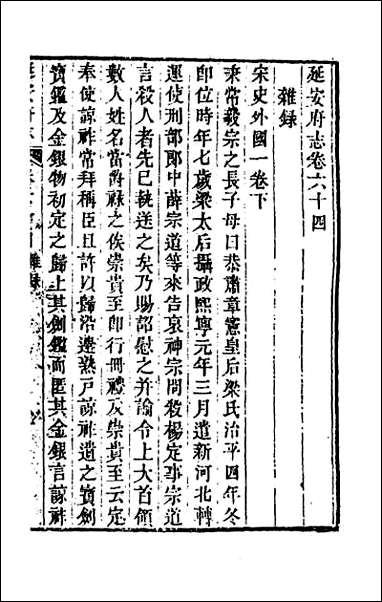 延安府志卷六十四
雜錄
宋史外國一卷下
秉常毅宗之長子母曰恭肅章憲皇后梁氏治平四年冬
即位時年七歲梁太后攝政熙寧元年三月遣新河北轉
運使刑部郎中薛宗道等來告哀神宗問殺楊定事宗道
言殺人者先已執送之矣乃賜詔慰之并諭令上大首領
數人姓名當爵祿之俟崇貴至即行冊禮及崇貴至云定
奉使諒祚常拜稱臣且許以歸沿邊熟戶諒祚遺之寶劍
寶鑑及金銀物初定之歸上其劍鑑而匿其金銀言諒祚
雜錄